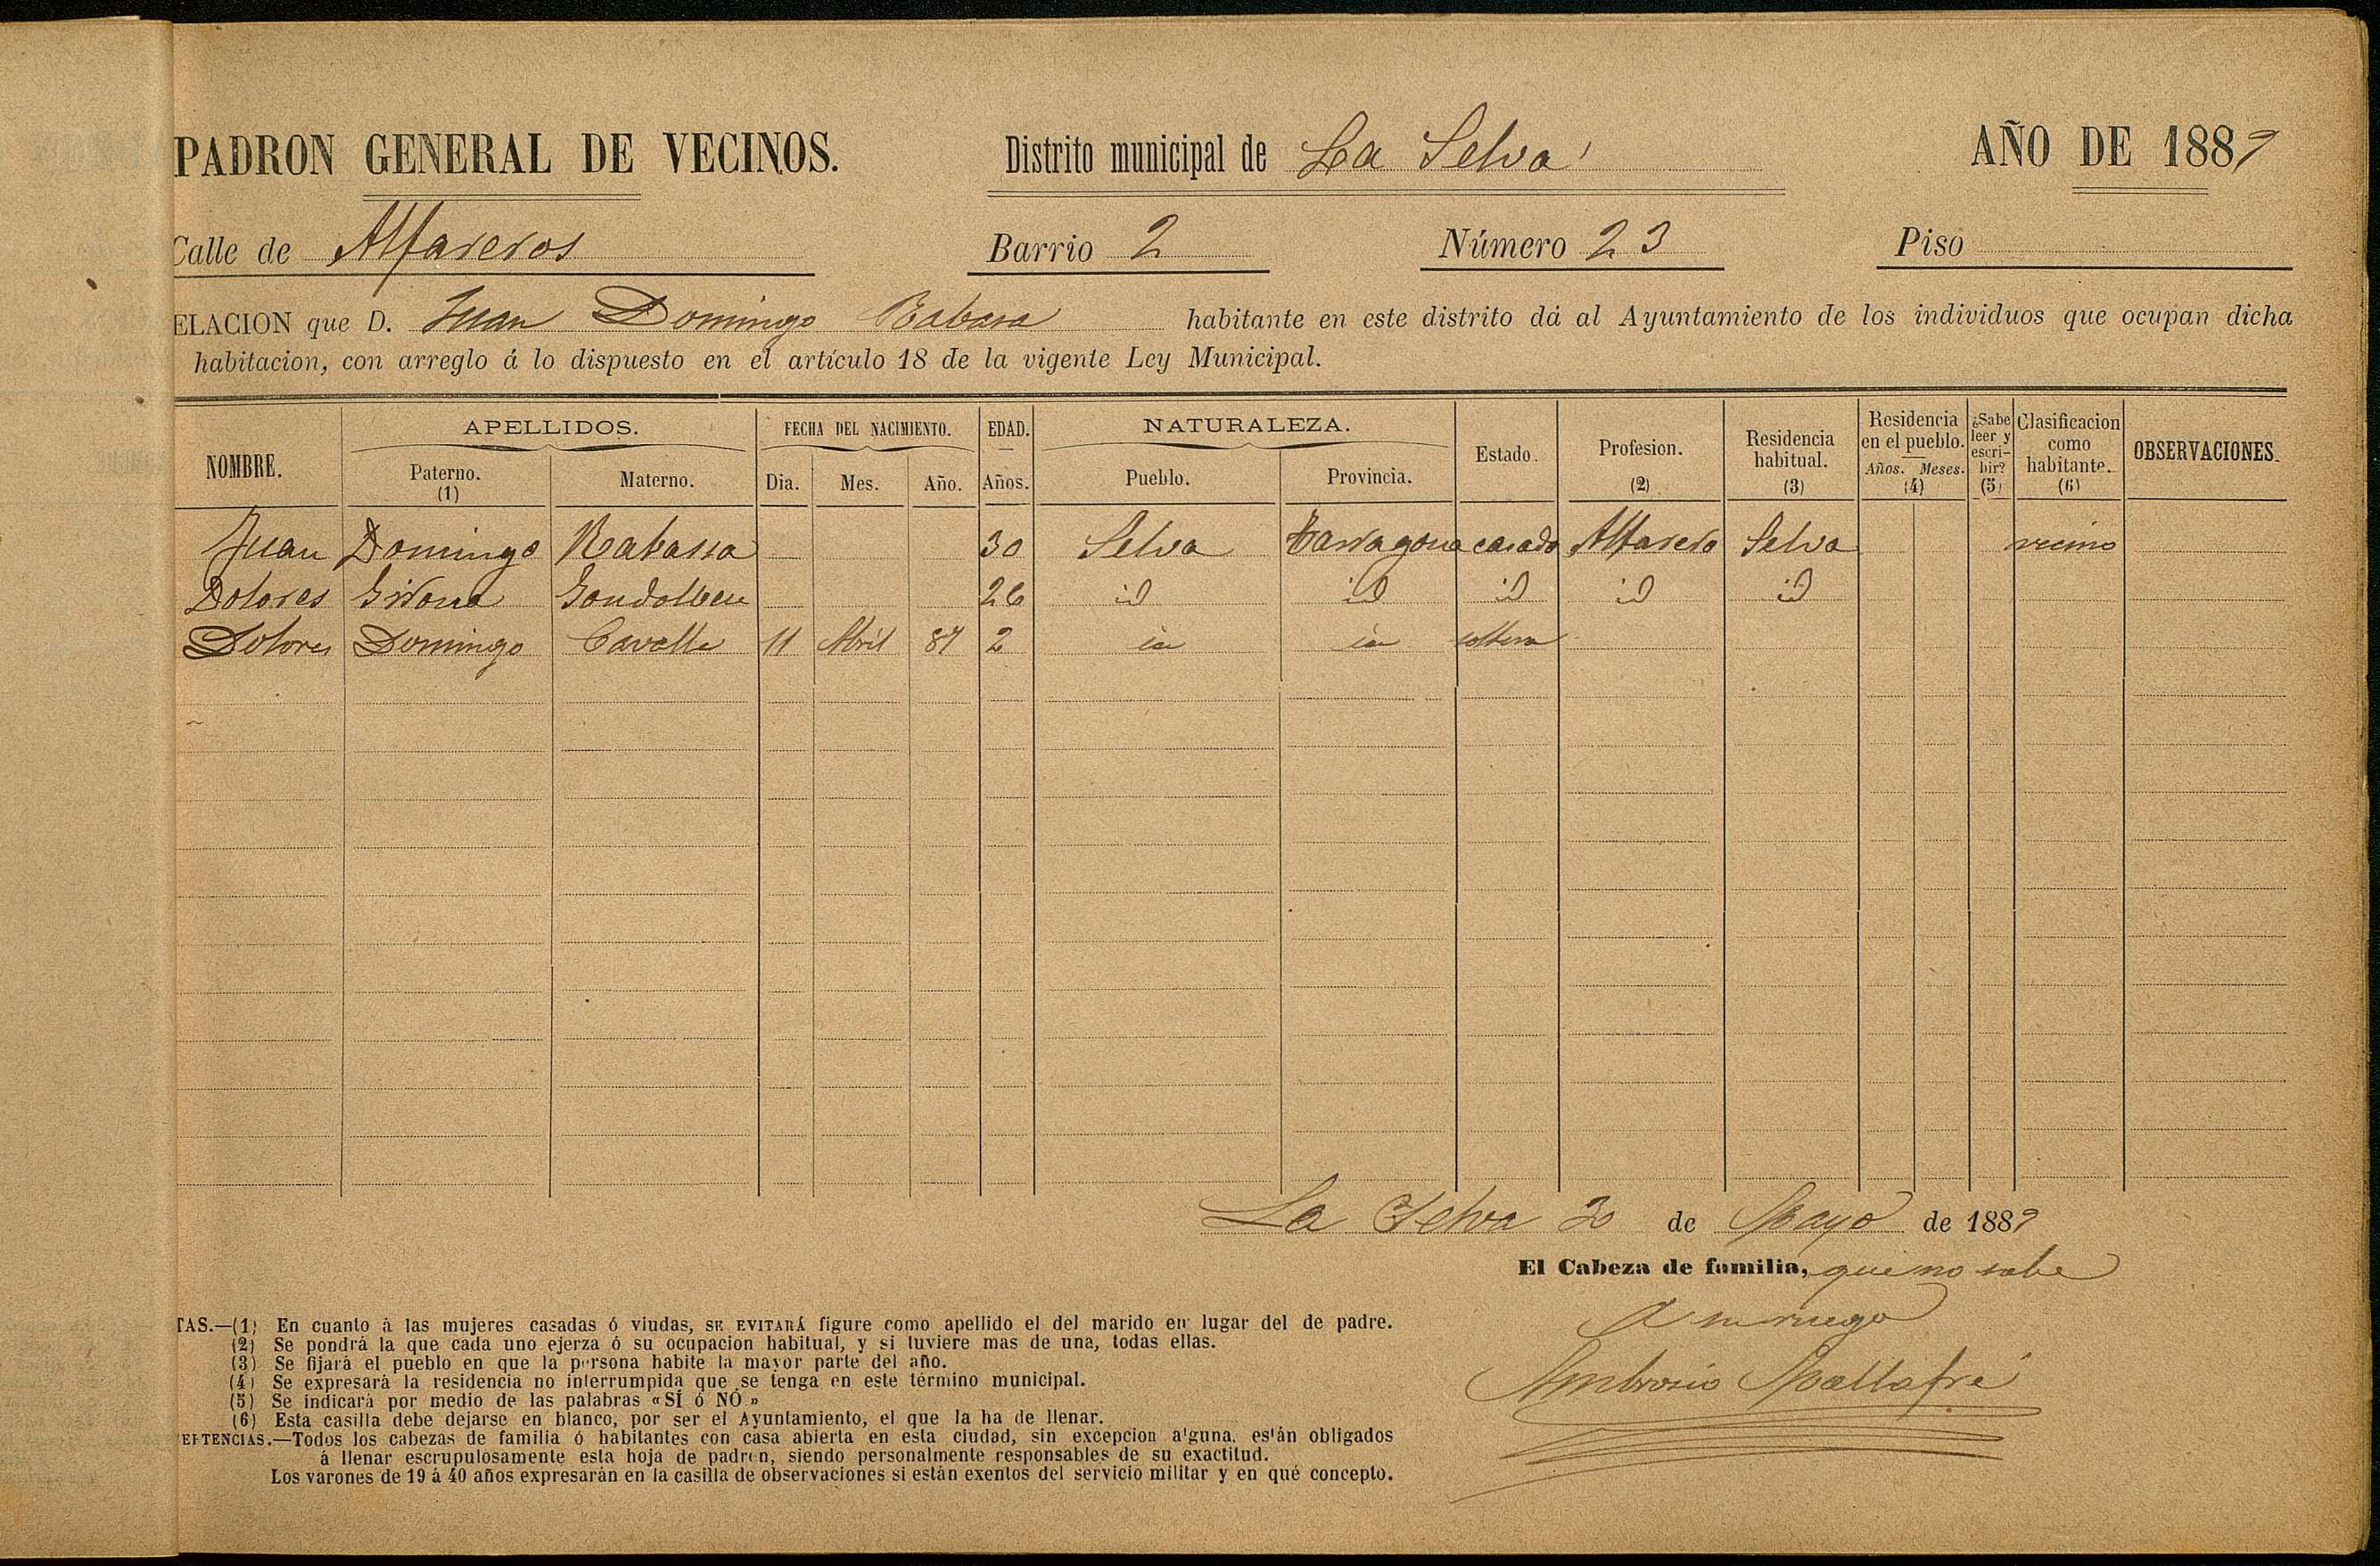 PADRON GENERAL DE VECINOS. Distrito municipal de La Selva AÑO DE 1889
Calle de Alfareros Barrio 2 Número 23 Piso
ELACION que D. Juan Domingo Rabasa habitante en este distrito dá al Ayuntamiento de los individuos que ocupan dicha
habitacion, con arreglo á lo dispuesto en el artículo 18 de la vigente Ley Municipal.
NOMBRE. APELLIDOS. Paterno. (1) Materno. FECHA DEL NACIMIENTO. Dia. Mes. Año. EDAD. Años. NATURALEZA. Pueblo. Provincia. Estado. Profesion. (2) Residencia habitual. (3) Residencia en el pueblo. Años. Meses. (4) ¿Sabe leer y escribir? (5) Clasificacion como habitante. (6) OBSERVACIONES.
Juan Domingo Rabassa 30 Selva Tarragona casado Alfarero Selva vecino
Dolores Girona 26 id id id id id
Dolores Domingo Cavalle 11 Abril 87 2 id id soltera
La Selva 20 de Mayo de 1889
El Cabeza de familia, que no sabe
A su ruego
Ambrosio Mallafré
TAS.—(1) En cuanto á las mujeres casadas ó viudas, SE EVITARÁ figure como apellido el del marido en lugar del de padre.
(2) Se pondrá la que cada uno ejerza ó su ocupacion habitual, y si tuviere mas de una, todas ellas.
(3) Se fijará el pueblo en que la persona habite la mayor parte del año.
(4) Se expresará la residencia no interrumpida que se tenga en este término municipal.
(5) Se indicará por medio de las palabras «SÍ ó NÓ.»
(6) Esta casilla debe dejarse en blanco, por ser el Ayuntamiento, el que la ha de llenar.
ERTENCIAS.—Todos los cabezas de familia ó habitantes con casa abierta en esta ciudad, sin excepcion alguna, están obligados
á llenar escrupulosamente esta hoja de padron, siendo personalmente responsables de su exactitud.
Los varones de 19 á 40 años expresarán en la casilla de observaciones si están exentos del servicio militar y en qué concepto.